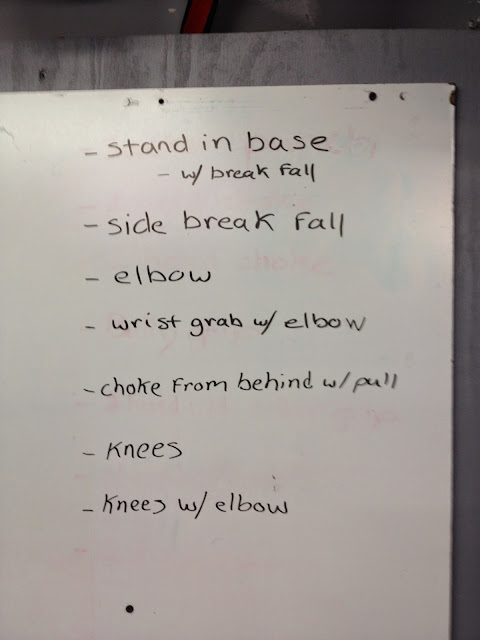 - stand in base
- w/ break fall
- side break fall
- elbow
- wrist grab w/ elbow
- choke from behind w/ pull
- knees
- knees w/ elbow